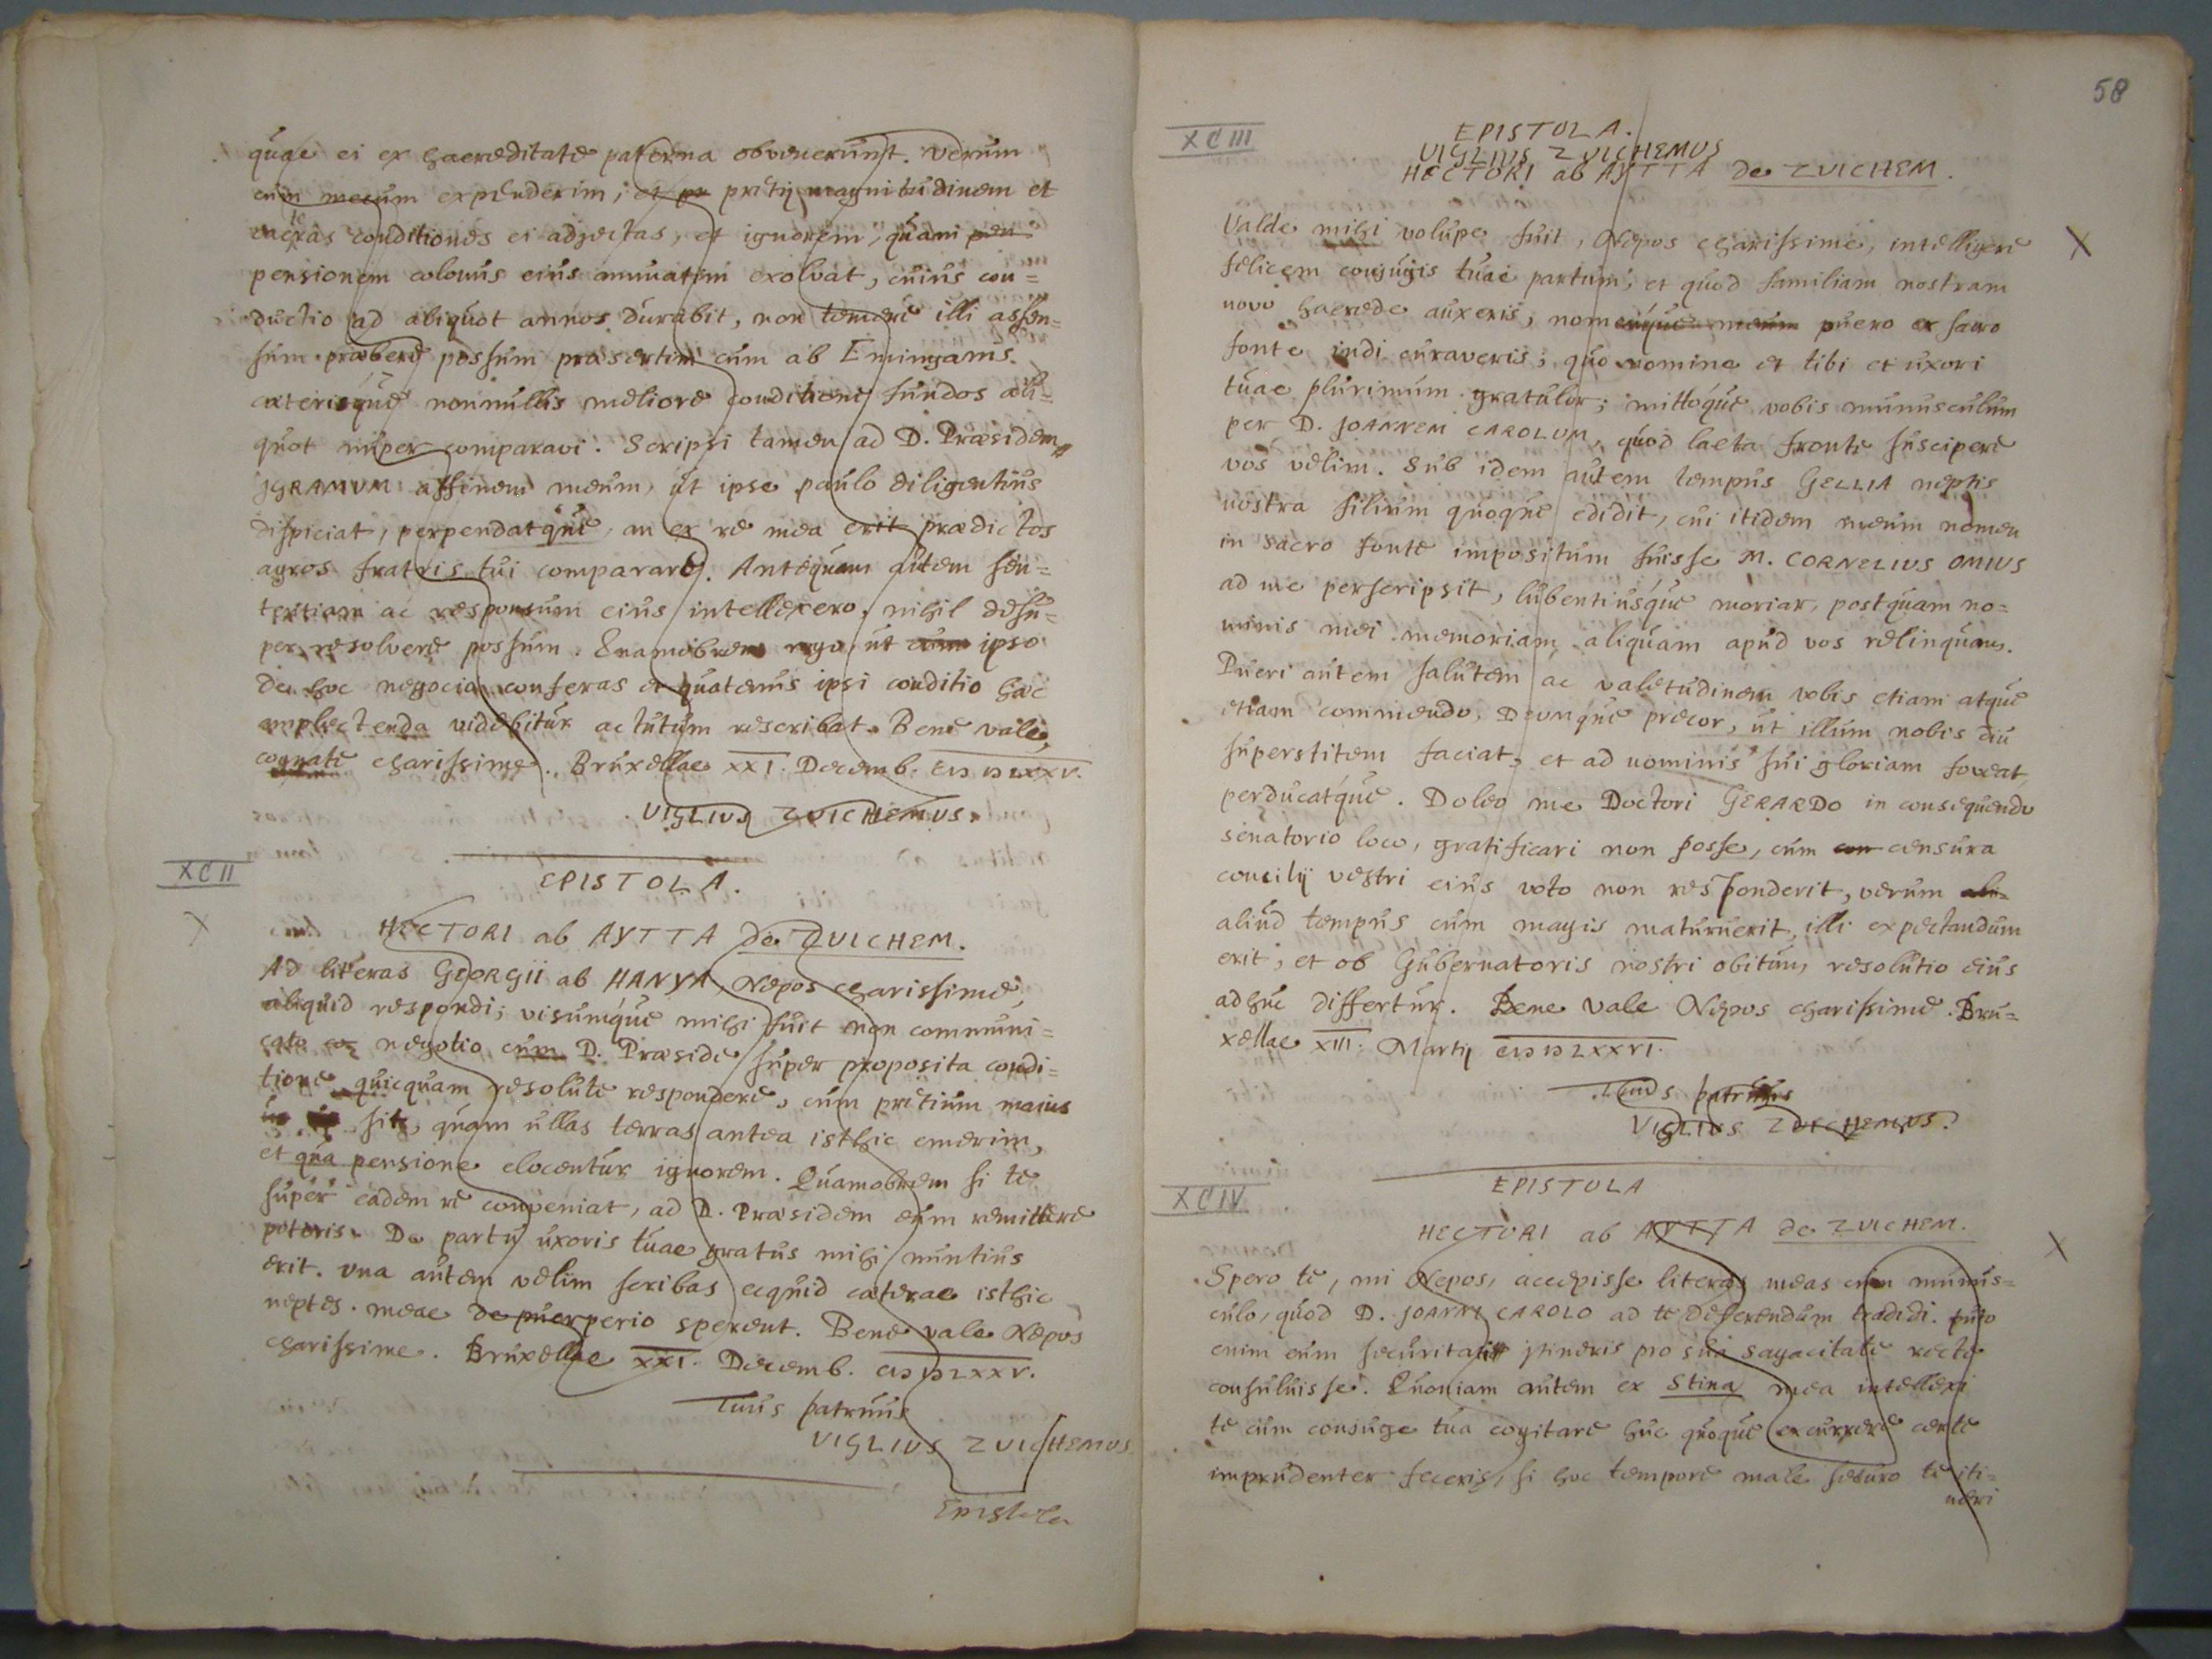 quae ei ex haereditate paterna obvenerunt. verum
cum mecum expenderim, et pr pretij magnitudinem et
caeteras conditiones ei adjectas, et ignorem, quam pen
pensionem colonus eius annuatim exolvat, cuius con=
ductio ad aliquot annos durabit, non temere illi assen=
sum praebere possum praesertim cum ab Emingams
caeterisque nonnullis meliore conditione fundos ali=
quot nuper comparavi. Scripsi tamen ad D. Praesidem
IGRAMVM affinem meum, ut ipse paulo diligentius
dispiciat, perpendatque, an ex re mea erit praedictos
agros fratris tui comparare. Antequam autem sen=
tentiam ac responsum eius intellexero, nihil desu=
per resolvere possum. Quamobrem rogo, ut cum ipso
de hoc negocio conferas et quatenus ipsi conditio haec
amplectenda videbitur actutum rescribat. Bene vale,
cognate charissime. Bruxellae XXI. Decemb. CIƆ IƆ LXXV.
VIGLIVS ZVICHEMVS.
XCII
EPISTOLA.
HECTORI ab AYTTA de ZVICHEM.
Ad literas GEORGII ab HANYA, Nepos charissime,
aliquid respondi; visumque mihi fuit non communi=
cato negotio cum D. Praeside super proposita condi=
tione quicquam resolute respondere, cum pretium maius
sit, quam ullas terras antea isthic emerim,
et qua pensione elocentur ignorem. Quamobrem si te
super eadem re conveniat, ad D. Praesidem eum remittere
poteris. De partu uxoris tuae gratus mihi nuntius
erit. Vna autem velim scribas ecquid caeterae isthic
neptes meae de puerperio sperent. Bene vale Nepos
charissime. Bruxellae XXI. Decemb. CIƆ IƆ LXXV.
Tuus patruus
VIGLIVS ZVICHEMVS.
Epistola
58
XCIII
EPISTOLA.
VIGLIVS ZVICHEMVS
HECTORI ab AYTTA de ZVICHEM.
Valde mihi volupe fuit, Nepos charissime, intelligere
felicem conjugis tuae partum, et quod familiam nostram
novo haerede auxeris, nomenque meum puero ex sacro
fonte indi curaveris; quo nomine et tibi et uxori
tuae plurimum gratulor; mittoque vobis munusculum
per D. JOANNEM CAROLVM, quod laeta fronte suscipere
vos velim. Sub idem autem tempus GELLIA neptis
nostra filium quoque edidit, cui itidem meum nomen
in sacro fonte impositum fuisse M. CORNELIVS OMIVS
ad me perscripsit, lubentiusque moriar, postquam no=
minis mei memoriam aliquam apud vos relinquam.
Pueri autem salutem ac valetudinem vobis etiam atque
etiam commendo, DEVMque precor, ut illum nobis diu
superstitem faciat, et ad nominis sui gloriam foveat,
perducatque. Doleo me Doctori GERARDO in consequendo
senatorio loco, gratificari non posse, cum con censura
consilij vestri eius voto non responderit, verum ali=
aliud tempus cum magis maturuerit, illi expectandum
erit, et ob Gubernatoris nostri obitum resolutio eius
adhuc differtur. Bene vale Nepos charissime. Bru=
xellae XIII. Martij CIƆ IƆ LXXVI.
Tuus patruus
VIGLIVS ZVICHEMVS.
XCIV
EPISTOLA
HECTORI ab AYTTA de ZVICHEM.
Spero te, mi Nepos, accepisse literas meas cum munus=
culo, quod D. JOANNI CAROLO ad te deferendum tradidi. puto
enim eum securitati itineris pro sua sagacitate recte
consuluisse. Quoniam autem ex Stina mea intellexi
te cum conjuge tua cogitare huc quoque excurrere certe
imprudenter feceris, si hoc tempore male securo te iti=
neri